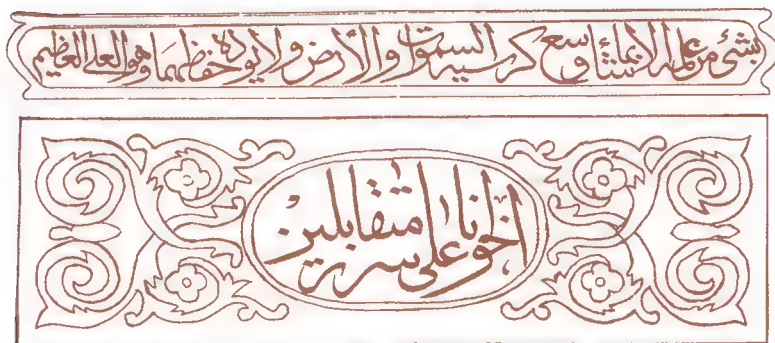 بشئ من علمه إلا بما شاء وسع كرسيه السموات والأرض ولا يوده حفظهما وهو العلي العظيم
إخوانا على سرر متقابلين